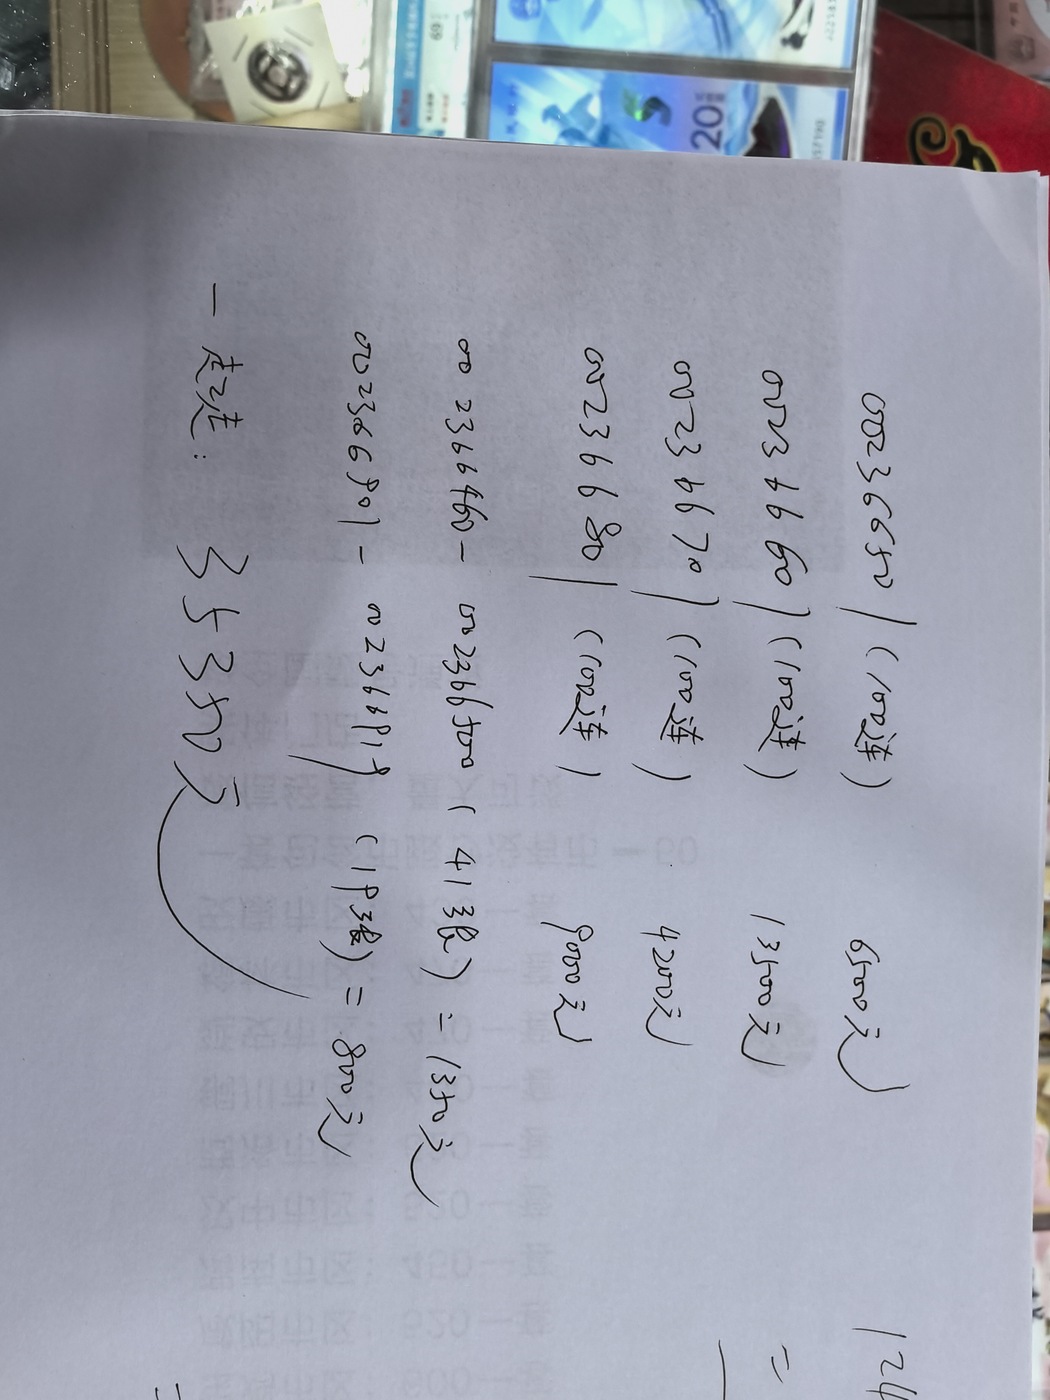 002366501 (100连) 6500元
002366601 (100连) 13500元
002366701 (100连) 4200元
002366801 (100连) 9000元
002366460-002366500 (41张) = 1350元
002366901-002366919 (19张) = 800元
一走走: 35350元
124
=
20